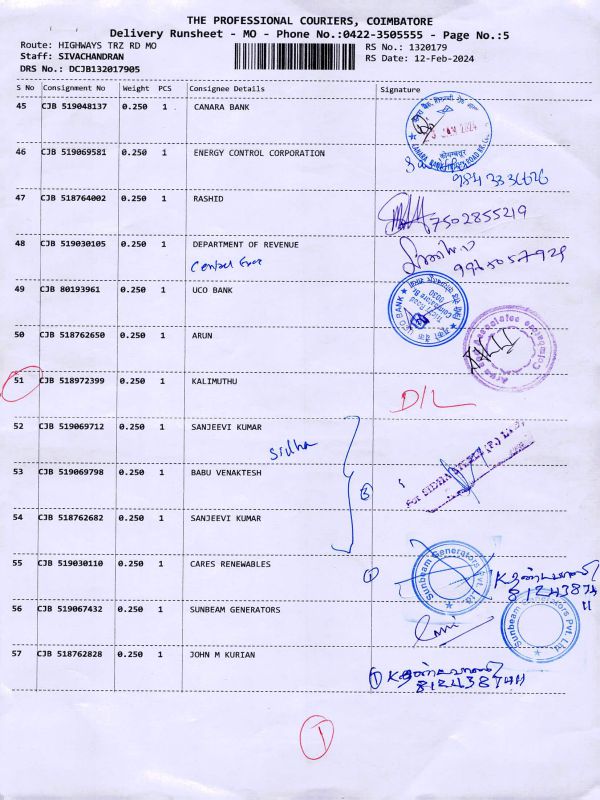 THE PROFESSIONAL COURIERS, COIMBATORE
Delivery Runsheet - MO - Phone No.:0422-3505555 - Page No.:5
Route: HIGHWAYS TRZ RD MO
RS No.: 1320179
Staff: SIVACHANDRAN
RS Date: 12-Feb-2024
DRS No.: DCJB132017905
S No Consignment No Weight PCS Consignee Details Signature
45 CJB 519048137 0.250 1 CANARA BANK
46 CJB 519069581 0.250 1 ENERGY CONTROL CORPORATION
9843331626
47 CJB 518764002 0.250 1 RASHID
7502855219
48 CJB 519030105 0.250 1 DEPARTMENT OF REVENUE
9965057929
49 CJB 80193961 0.250 1 UCO BANK
UCO BANK
50 CJB 518762650 0.250 1 ARUN
51 CJB 518972399 0.250 1 KALIMUTHU
D/L
52 CJB 519069712 0.250 1 SANJEEVI KUMAR
Sidha
53 CJB 519069798 0.250 1 BABU VENAKTESH
③
54 CJB 518762682 0.250 1 SANJEEVI KUMAR
55 CJB 519030110 0.250 1 CARES RENEWABLES
Sunbeam Generators Pvt. Ltd
8124387411
56 CJB 519067432 0.250 1 SUNBEAM GENERATORS
Sunbeam Generators Pvt. Ltd
57 CJB 518762828 0.250 1 JOHN M KURIAN
①
8124387411
①